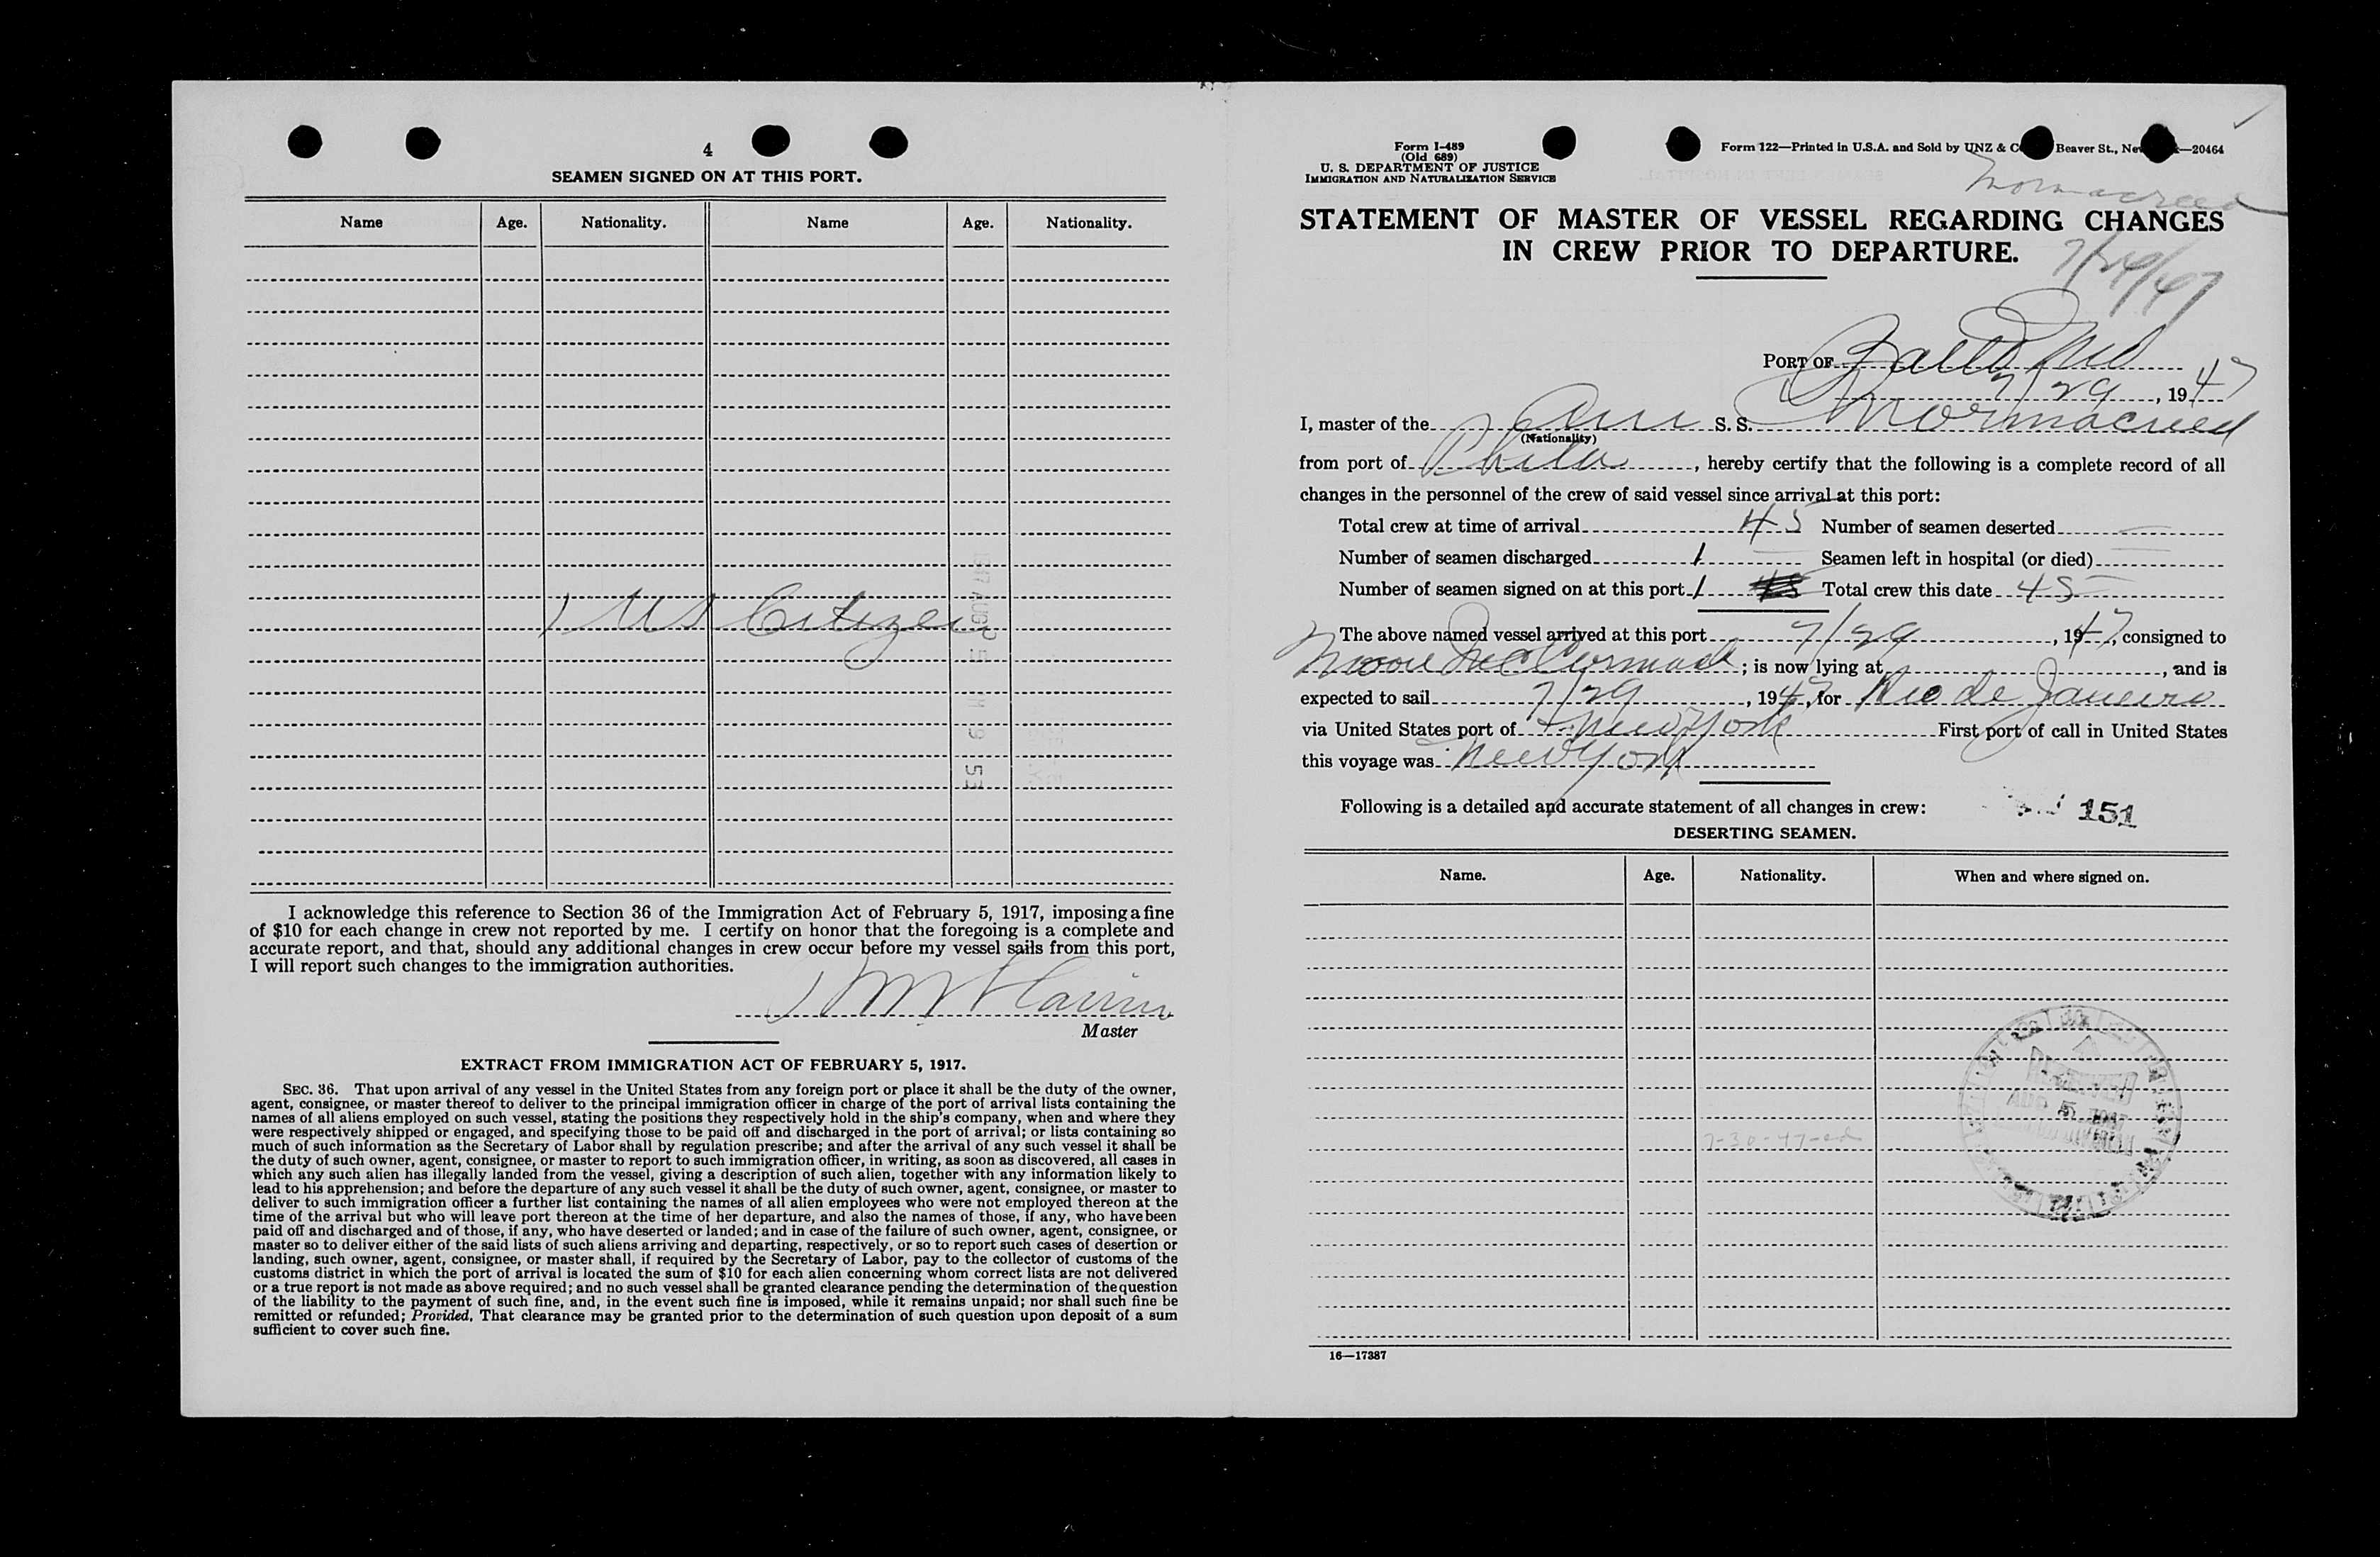 4
SEAMEN SIGNED ON AT THIS PORT.
Name Age. Nationality. Name Age. Nationality.
1 US Citizen
I acknowledge this reference to Section 36 of the Immigration Act of February 5, 1917, imposing a fine
of $10 for each change in crew not reported by me. I certify on honor that the foregoing is a complete and
accurate report, and that, should any additional changes in crew occur before my vessel sails from this port,
I will report such changes to the immigration authorities.
Master
EXTRACT FROM IMMIGRATION ACT OF FEBRUARY 5, 1917.
SEC. 36. That upon arrival of any vessel in the United States from any foreign port or place it shall be the duty of the owner,
agent, consignee, or master thereof to deliver to the principal immigration officer in charge of the port of arrival lists containing the
names of all aliens employed on such vessel, stating the positions they respectively hold in the ship's company, when and where they
were respectively shipped or engaged, and specifying those to be paid off and discharged in the port of arrival; or lists containing so
much of such information as the Secretary of Labor shall by regulation prescribe; and after the arrival of any such vessel it shall be
the duty of such owner, agent, consignee, or master to report to such immigration officer, in writing, as soon as discovered, all cases in
which any such alien has illegally landed from the vessel, giving a description of such alien, together with any information likely to
lead to his apprehension; and before the departure of any such vessel it shall be the duty of such owner, agent, consignee, or master to
deliver to such immigration officer a further list containing the names of all alien employees who were not employed thereon at the
time of the arrival but who will leave port thereon at the time of her departure, and also the names of those, if any, who have been
paid off and discharged and of those, if any, who have deserted or landed; and in case of the failure of such owner, agent, consignee, or
master so to deliver either of the said lists of such aliens arriving and departing, respectively, or so to report such cases of desertion or
landing, such owner, agent, consignee, or master shall, if required by the Secretary of Labor, pay to the collector of customs of the
customs district in which the port of arrival is located the sum of $10 for each alien concerning whom correct lists are not delivered
or a true report is not made as above required; and no such vessel shall be granted clearance pending the determination of the question
of the liability to the payment of such fine, and, in the event such fine is imposed, while it remains unpaid; nor shall such fine be
remitted or refunded; Provided, That clearance may be granted prior to the determination of such question upon deposit of a sum
sufficient to cover such fine.
Form I-489
(Old 689)
U. S. DEPARTMENT OF JUSTICE
IMMIGRATION AND NATURALIZATION SERVICE
Form 122—Printed in U.S.A. and Sold by UNZ & C Beaver St., Ne —20464
Mormacreed
STATEMENT OF MASTER OF VESSEL REGARDING CHANGES
IN CREW PRIOR TO DEPARTURE.
7/29/47
PORT OF Balto Md
7/29, 1947
I, master of the Am S. S. Mormacreed
(Nationality)
from port of Phila, hereby certify that the following is a complete record of all
changes in the personnel of the crew of said vessel since arrival at this port:
Total crew at time of arrival 45 Number of seamen deserted —
Number of seamen discharged 1 Seamen left in hospital (or died) —
Number of seamen signed on at this port 1 Total crew this date 45
The above named vessel arrived at this port 7/29, 1947, consigned to
Moore McCormack; is now lying at , and is
expected to sail 7/29, 1947, for Rio de Janeiro
via United States port of New York First port of call in United States
this voyage was New York
Following is a detailed and accurate statement of all changes in crew:
151
DESERTING SEAMEN.
Name. Age. Nationality. When and where signed on.
RECEIVED
AUG 5 1947
7-30-47-ed
16—17387